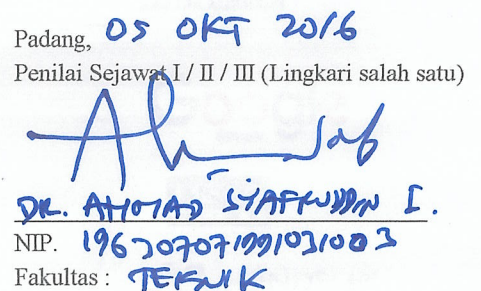 Padang, 05 OKT 2016
Penilai Sejawat I / II / III (Lingkari salah satu)
DR. AHMAD SYAFRUDDIN I.
NIP. 196307071991031003
Fakultas : TEKNIK